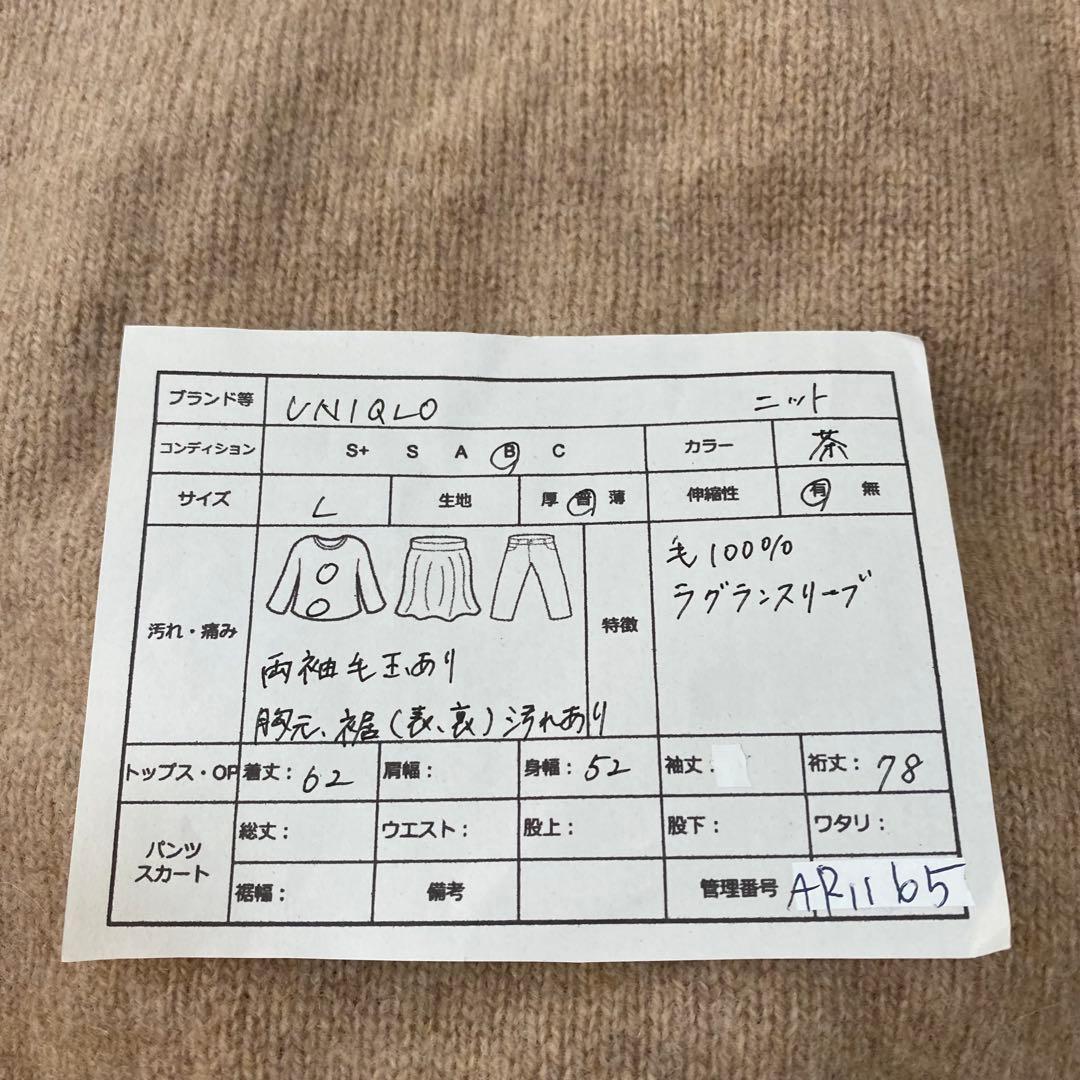 ブランド等 UNIQLO ニット
コンディション S+ S A B C カラー 茶
サイズ L 生地 厚 普 薄 伸縮性 有 無
汚れ・痛み 特徴
毛100%
ラグランスリーブ
両袖毛玉あり
胸元、裾(表、裏)汚れあり
トップス・OP 着丈: 62 肩幅: 身幅: 52 袖丈: 裄丈: 78
パンツ
スカート
総丈: ウエスト: 股上: 股下: ワタリ:
裾幅: 備考 管理番号 AR1165